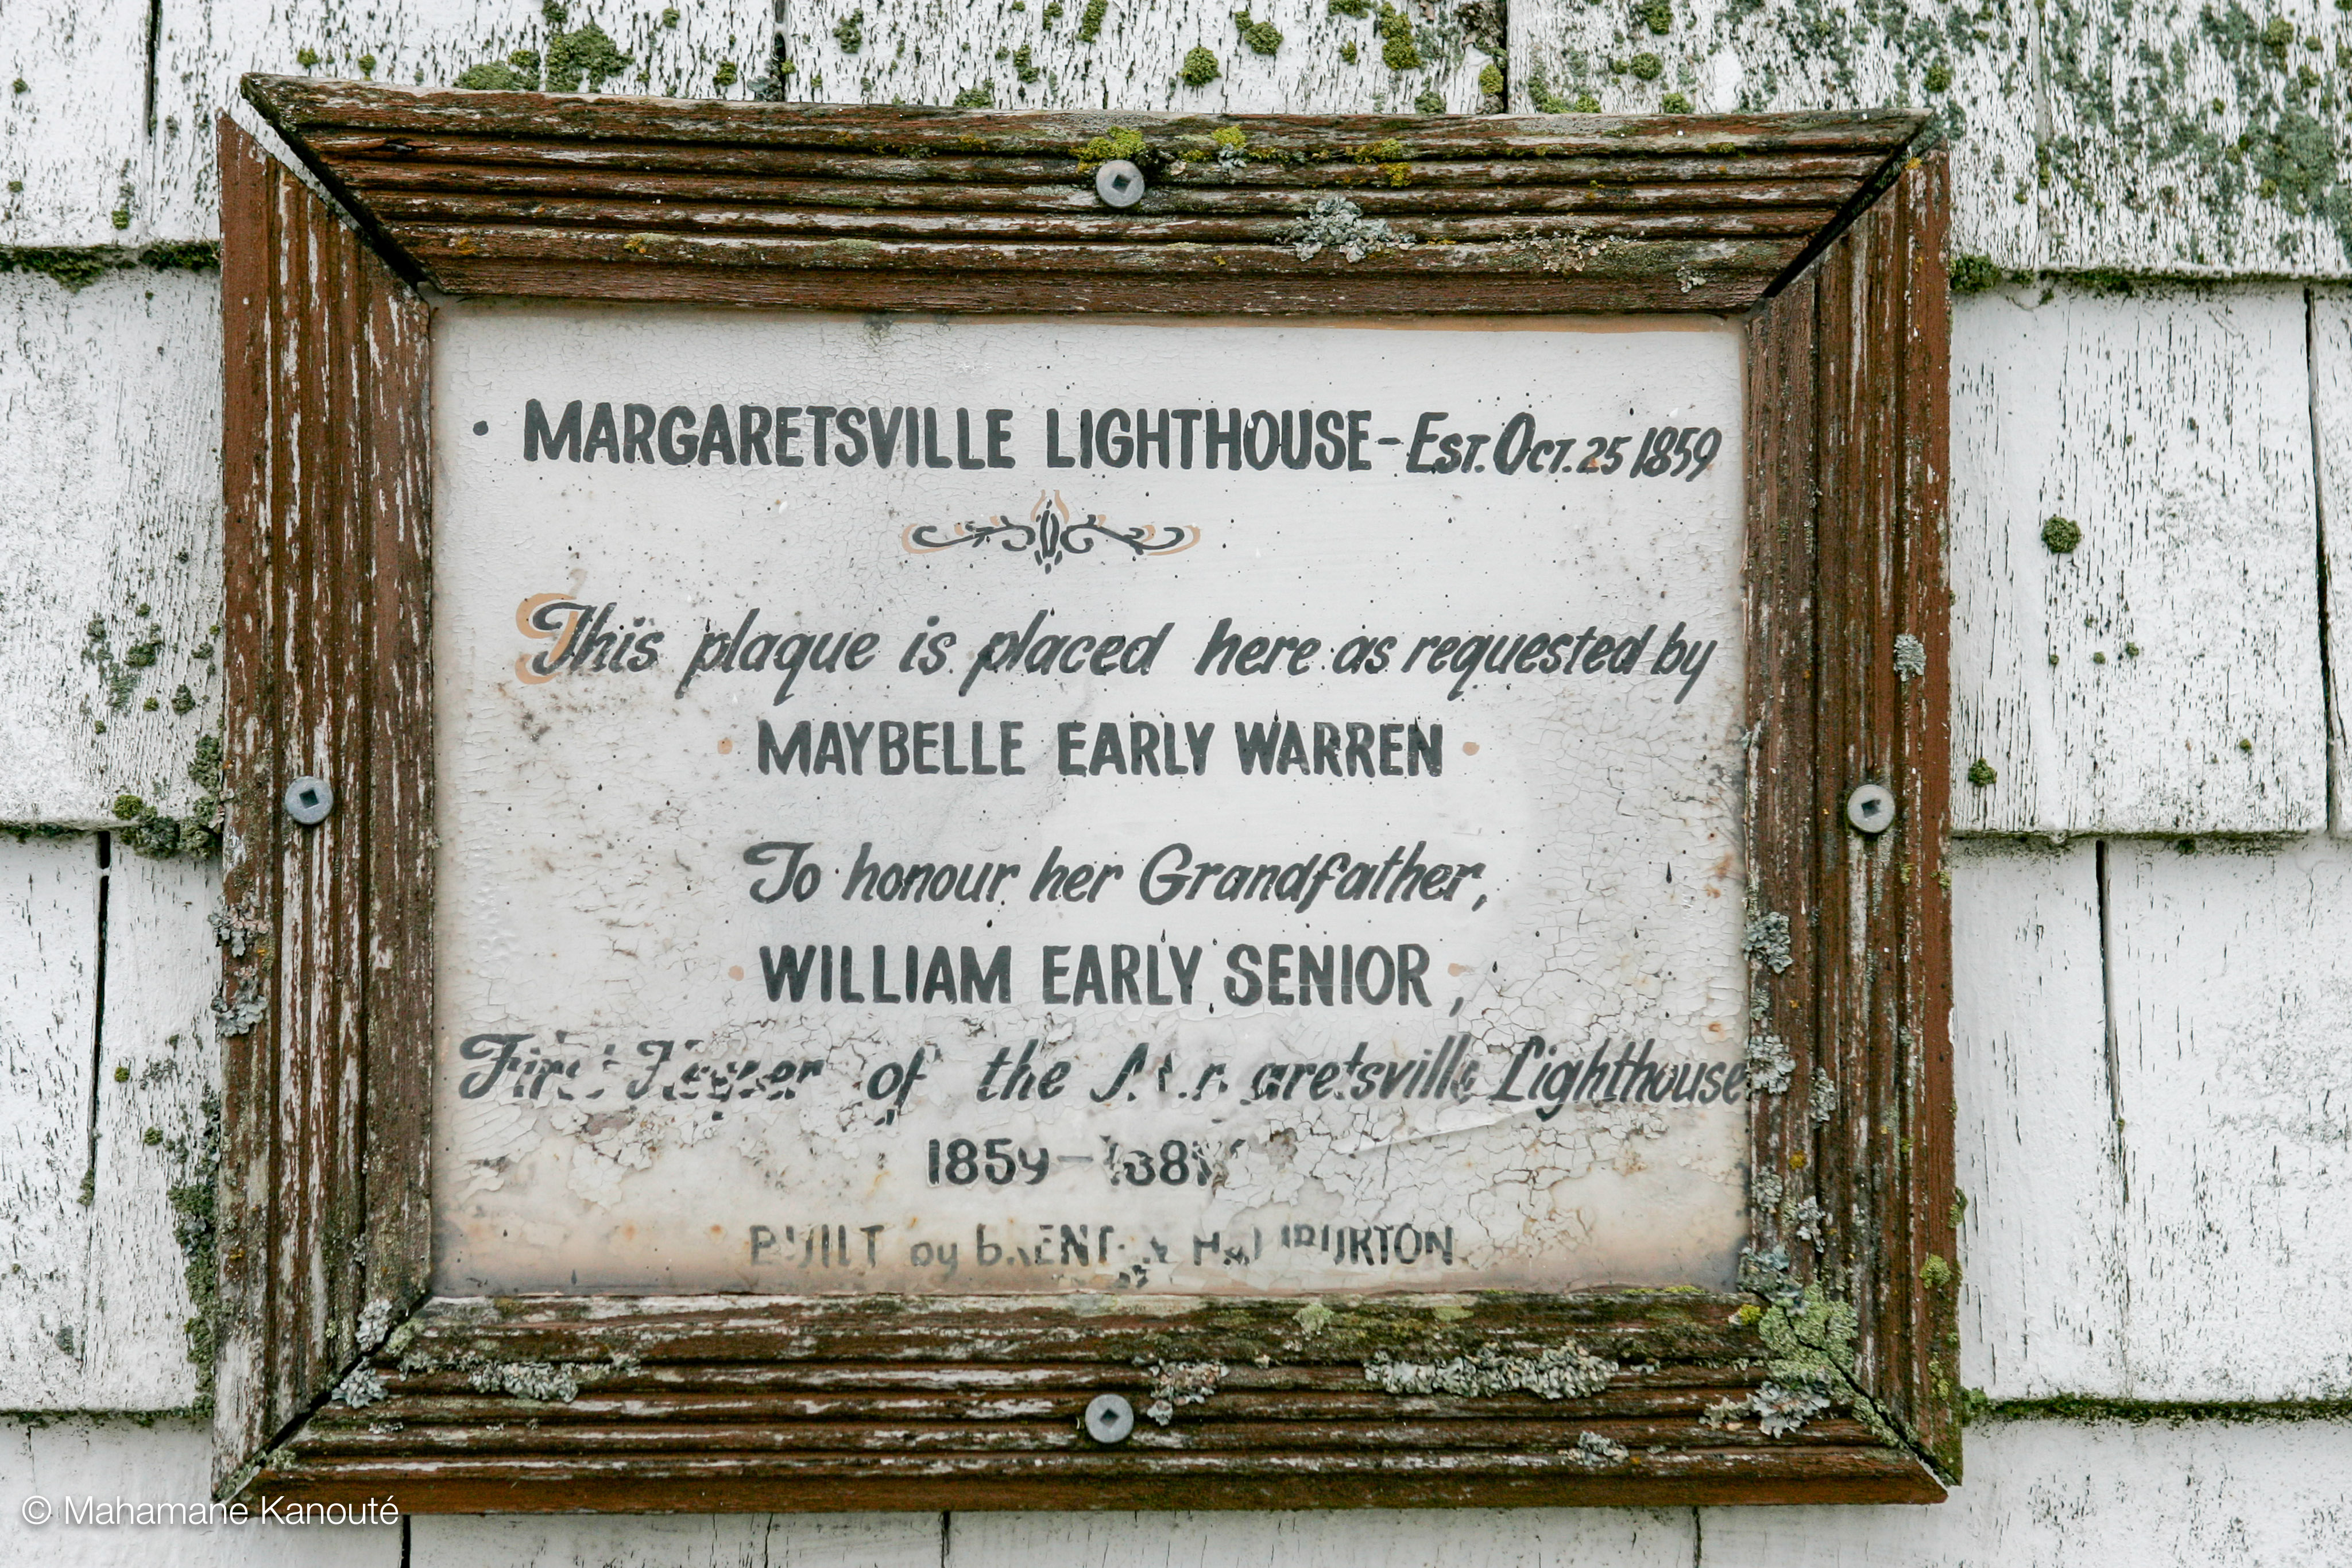 · MARGARETSVILLE LIGHTHOUSE - EST. OCT. 25 1859
This plaque is placed here as requested by
· MAYBELLE EARLY WARREN ·
To honour her Grandfather,
· WILLIAM EARLY SENIOR, ·
First Keeper of the Margaretsville Lighthouse
1859 -
BUILT by HALIBURTON
© Mahamane Kanouté